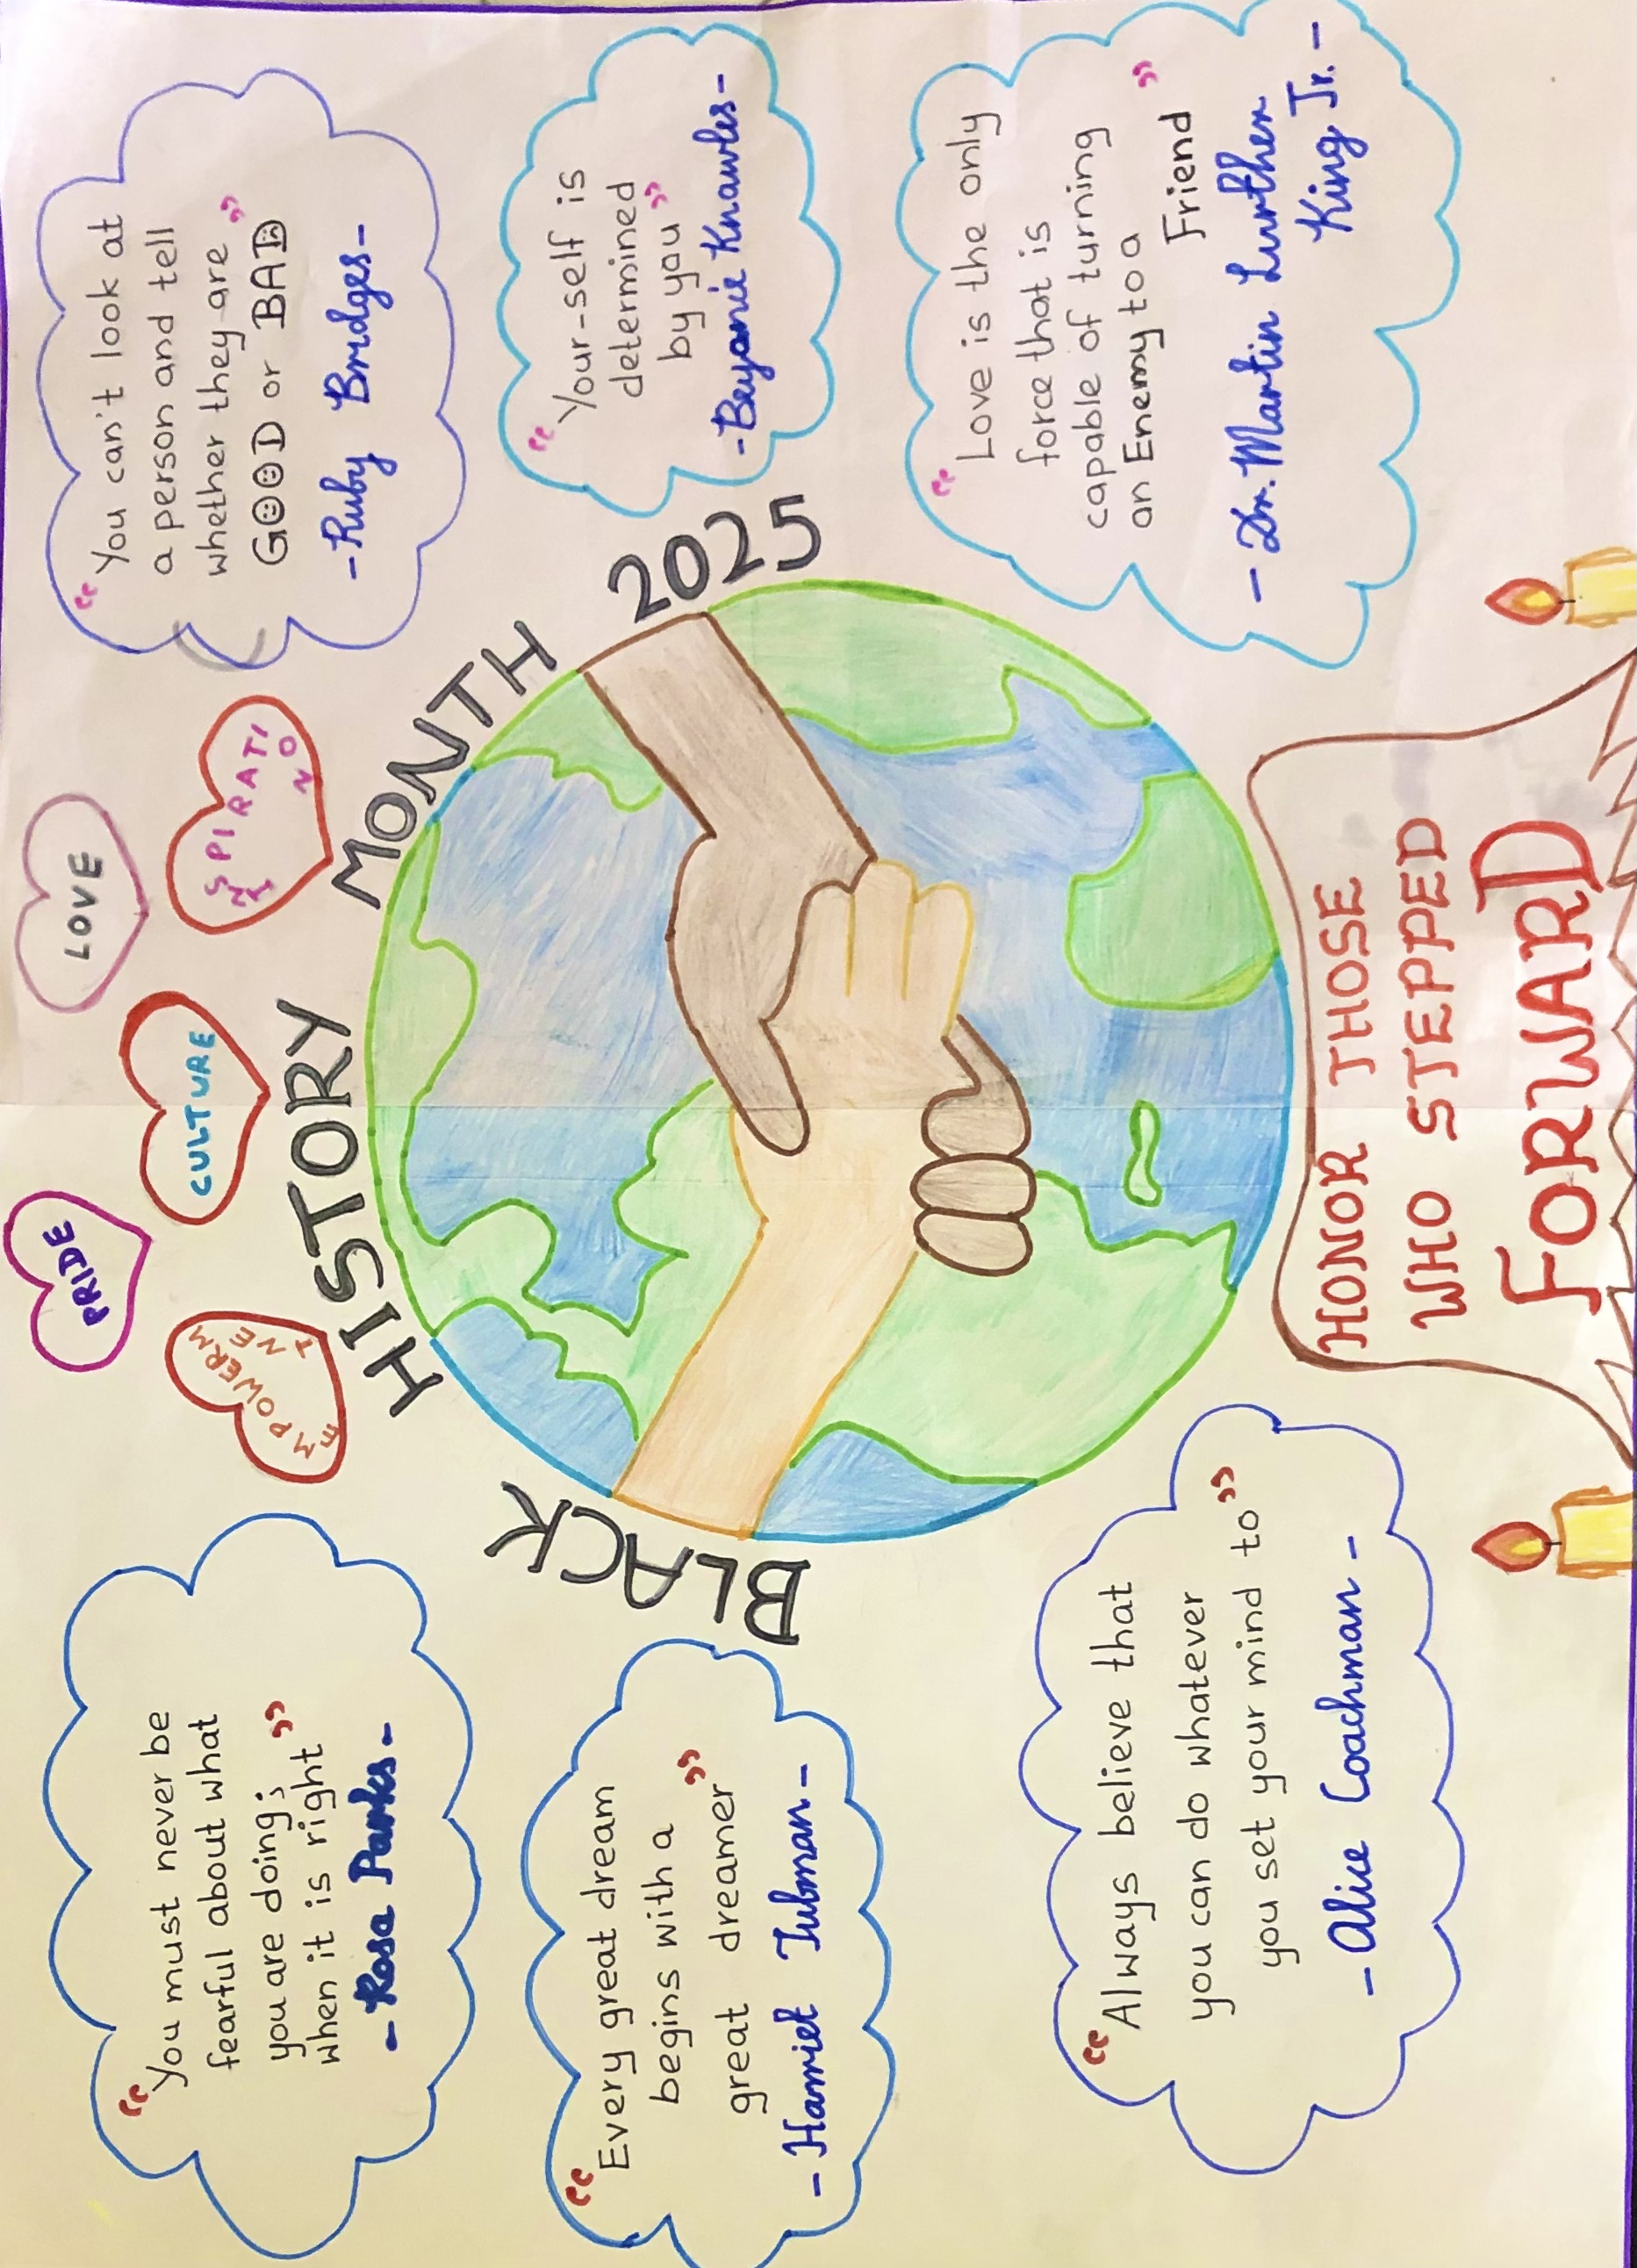 PRIDE
LOVE
EMPOWERMENT
CULTURE
INSPIRATION
BLACK HISTORY MONTH 2025
“You must never be
fearful about what
you are doing;
when it is right”
- Rosa Parks -
“You can't look at
a person and tell
whether they are
GOOD or BAD”
-Ruby Bridges-
“Every great dream
begins with a
great dreamer”
- Harriet Tubman -
“Your-self is
determined
by you”
-Beyonie Knawles-
“Always believe that
you can do whatever
you set your mind to”
- Alice Coachman -
“Love is the only
force that is
capable of turning
an Enemy to a
Friend”
- Dr. Martin Lurther
King Jr. -
HONOR THOSE
WHO STEPPED
FORWARD